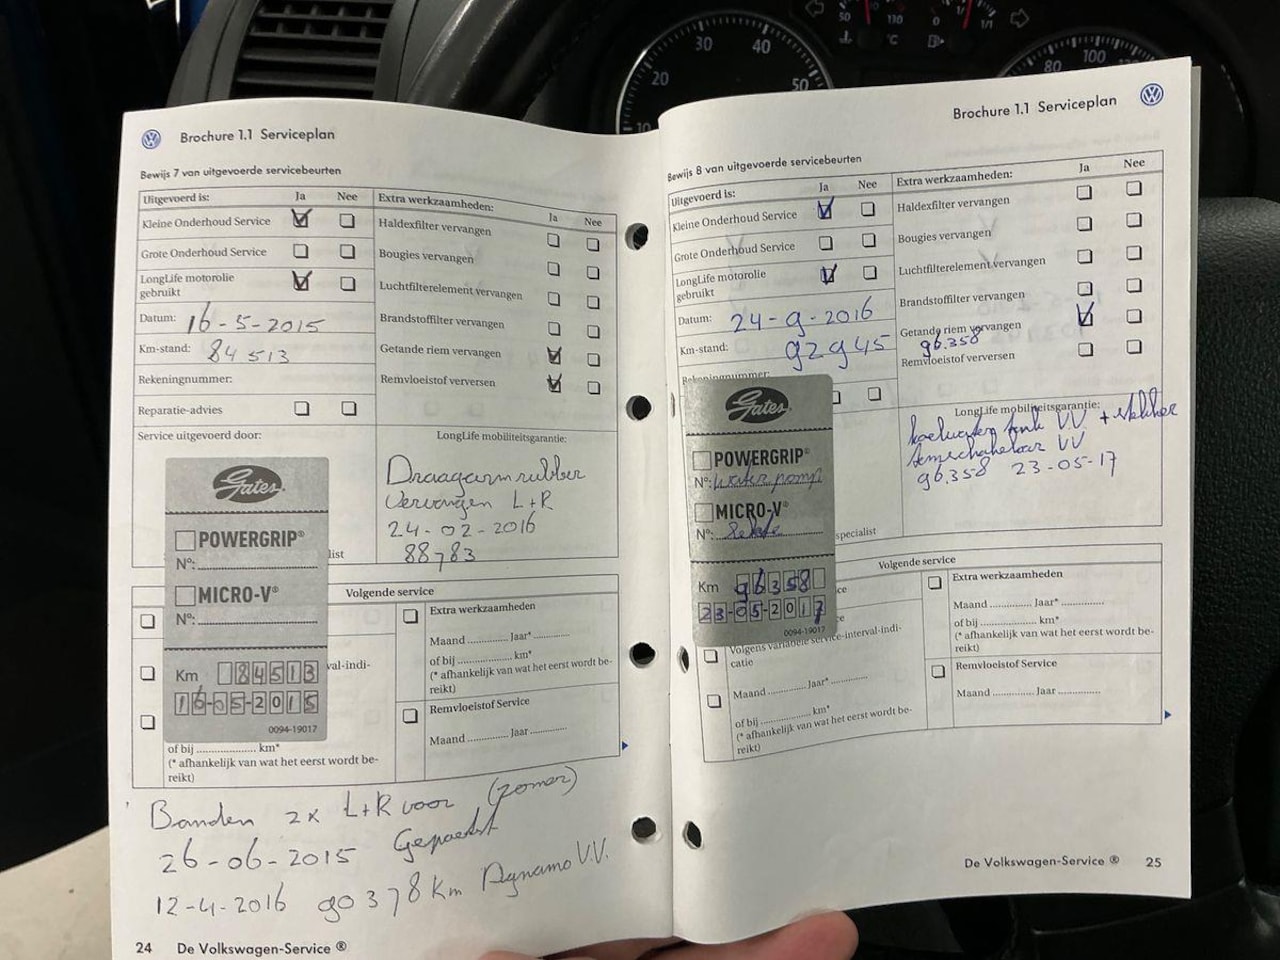 Brochure 1.1 Serviceplan
Bewijs 7 van uitgevoerde servicebeurten
Uitgevoerd is: Ja Nee
Kleine Onderhoud Service
Grote Onderhoud Service
LongLife motorolie
gebruikt
Datum: 16-5-2015
Km-stand: 84513
Rekeningnummer:
Reparatie-advies
Service uitgevoerd door:
Extra werkzaamheden: Ja Nee
Haldexfilter vervangen
Bougies vervangen
Luchtfilterelement vervangen
Brandstoffilter vervangen
Getande riem vervangen
Remvloeistof verversen
LongLife mobiliteitsgarantie:
Draagarmrubber
Vervangen L+R
24-02-2016
88783
Gates
POWERGRIP®
N°:
MICRO-V®
N°:
Km 84513
16-05-2015
0094-19017
list
Volgende service
val-indi-
of bij ........ km*
(* afhankelijk van wat het eerst wordt be-
reikt)
Extra werkzaamheden
Maand ........ Jaar* ........
of bij ........ km*
(* afhankelijk van wat het eerst wordt be-
reikt)
Remvloeistof Service
Maand ........ Jaar ........
Banden 2x L+R voor (zomer)
26-06-2015 Gepaekst
12-4-2016 90378 Km Dynamo V.V.
24 De Volkswagen-Service ®
Brochure 1.1 Serviceplan
Bewijs 8 van uitgevoerde servicebeurten
Uitgevoerd is: Ja Nee
Kleine Onderhoud Service
Grote Onderhoud Service
LongLife motorolie
gebruikt
Datum: 24-9-2016
Km-stand: 92945
Rekeningnummer:
Extra werkzaamheden: Ja Nee
Haldexfilter vervangen
Bougies vervangen
Luchtfilterelement vervangen
Brandstoffilter vervangen
Getande riem vervangen
96.358
Remvloeistof verversen
LongLife mobiliteitsgarantie:
koelwater tank VV + stekker
VV
96.358 23-05-17
Gates
POWERGRIP®
N°: Waterpomp
MICRO-V®
N°:
Km 96358
23-05-2017
0094-19017
specialist
Volgende service
ce
Volgens variabele service-interval-indi-
catie
Maand ........ Jaar* ........
of bij ........ km*
(* afhankelijk van wat het eerst wordt be-
reikt)
Extra werkzaamheden
Maand ........ Jaar* ........
of bij ........ km*
(* afhankelijk van wat het eerst wordt be-
reikt)
Remvloeistof Service
Maand ........ Jaar ........
De Volkswagen-Service ® 25
10 20 30 40 50
50 130 °C 0 1/1
80 100